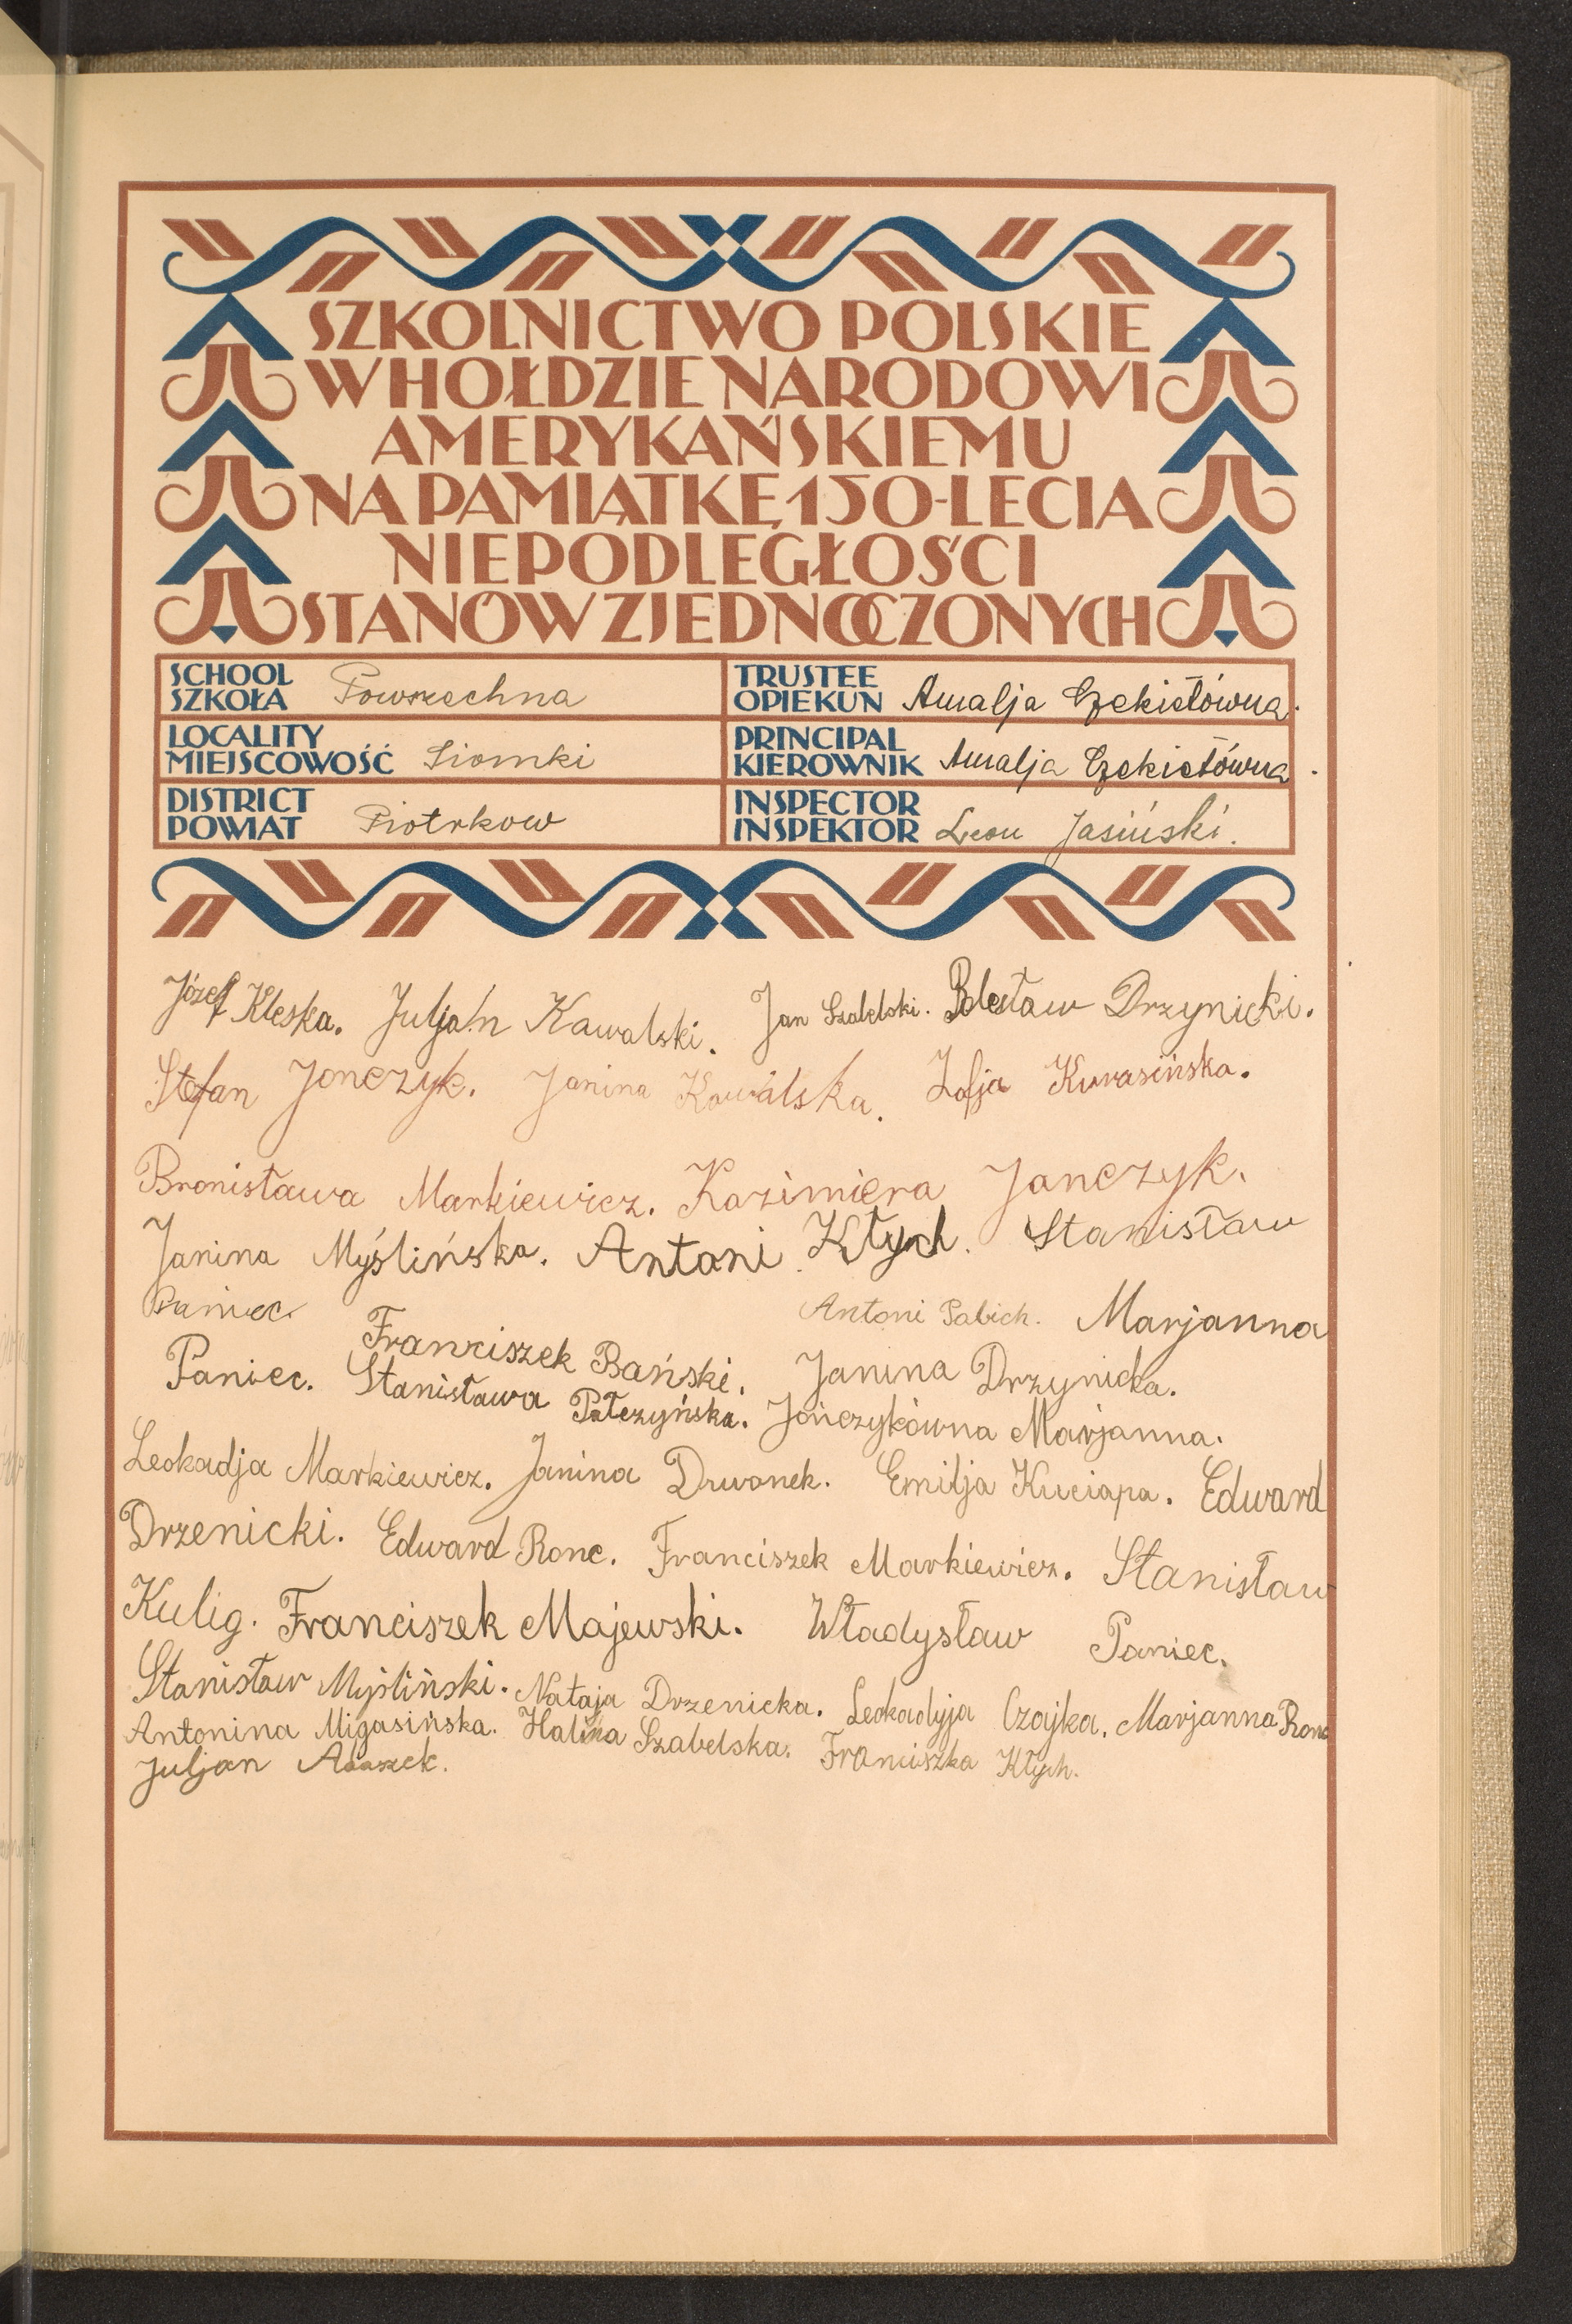 SZKOLNICTWO POLSKIE
W HOŁDZIE NARODOWI
AMERYKAŃSKIEMU
NA PAMIĄTKĘ 150-LECIA
NIEPODLEGŁOŚCI
STANÓW ZJEDNOCZONYCH
SCHOOL
SZKOŁA Powszechna
TRUSTEE
OPIEKUN Amalja Czekietówna.
LOCALITY
MIEJSCOWOŚĆ Siomki
PRINCIPAL
KIEROWNIK Amalja Czekietówna.
DISTRICT
POWIAT Piotrkow
INSPECTOR
INSPEKTOR Leon Jasiński.
Józef Kleska. Juljan Kawalski. Jan Szabelski. Bolesław Drzynicki.
Stefan Jonczyk. Janina Kowalska. Zofja Kurasińska.
Bronisława Markiewicz. Kazimiera Janczyk.
Janina Myślińska. Antoni Kłych. Stanisław
Paniec. Antoni Pabich. Marjanna
Paniec. Franciszek Bański. Janina Drzynicka.
Stanisława Pałczyńska. Jończykówna Marjanna.
Leokadja Markiewicz. Janina Drwonek. Emilja Kuciapa. Edward
Drzenicki. Edward Ronc. Franciszek Markiewicz. Stanisław
Kulig. Franciszek Majewski. Władysław Paniec.
Stanisław Myśliński. Nataja Drzenicka. Leokadyja Czajka. Marjanna Ronc
Antonina Migasińska. Halina Szabelska. Franciszka Kłych.
Juljan